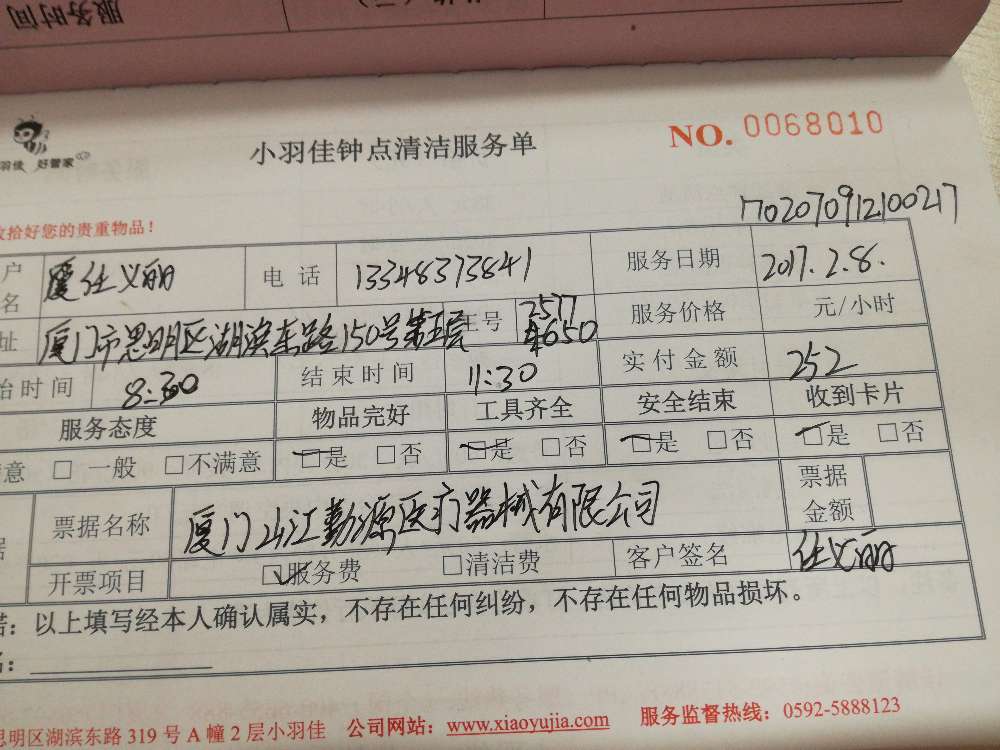 服务时间
羽佳 好管家
小羽佳钟点清洁服务单
NO. 0068010
1702070912100217
收拾好您的贵重物品！
户名 任义丽 电话 13348373841 服务日期 2017.2.8.
址 厦门市思明区湖滨东路150号第五层 工号 2577 4650 服务价格 元/小时
始时间 8:30 结束时间 11:30 实付金额 252
服务态度 物品完好 工具齐全 安全结束 收到卡片
意 □ 一般 □不满意 □是 □否 □是 □否 □是 □否 □是 □否
票据名称 厦门山江勤源医疗器械有限公司 票据金额
开票项目 □服务费 □清洁费 客户签名 任义丽
诺：以上填写经本人确认属实，不存在任何纠纷，不存在任何物品损坏。
名：
思明区湖滨东路 319 号 A 幢 2 层小羽佳 公司网站：www.xiaoyujia.com 服务监督热线：0592-5888123